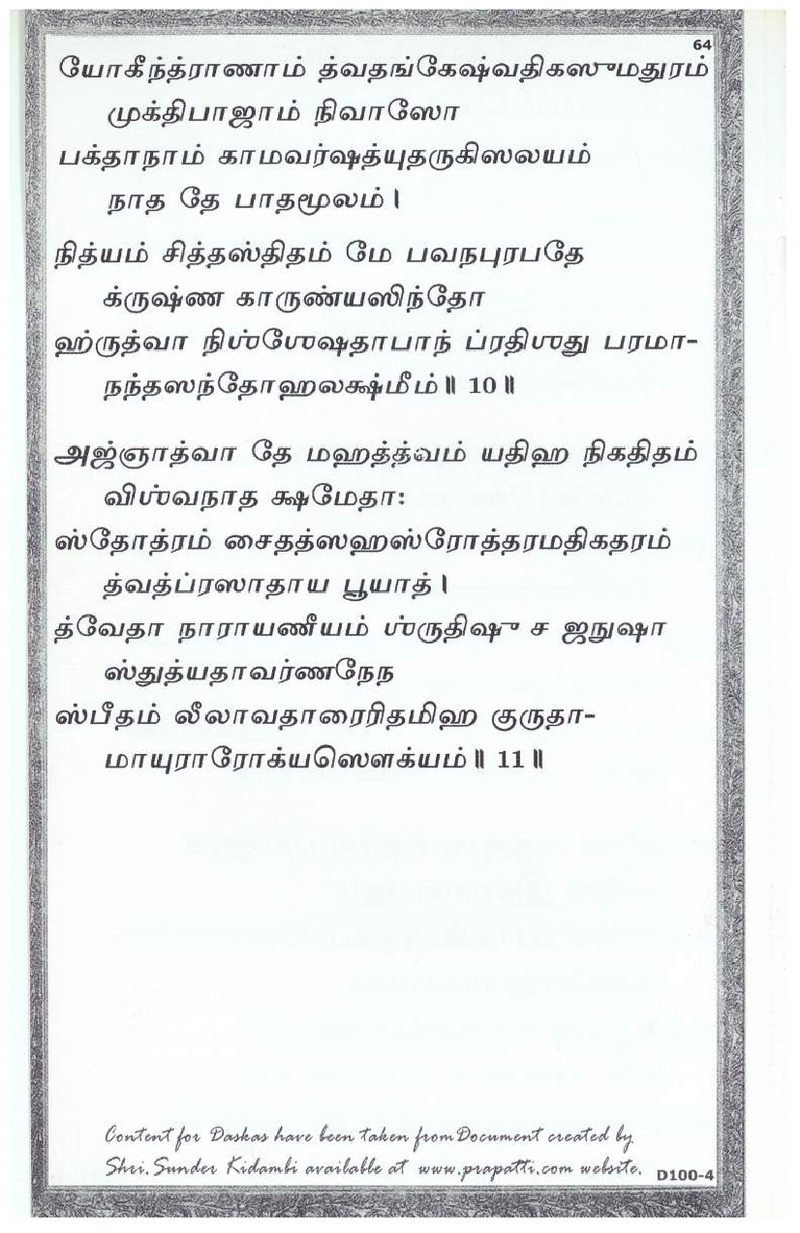 64
யோகீந்த்ராணாம் த்வதங்கேஷ்வதிகஸுமதுரம்
முக்திபாஜாம் நிவாஸோ
பக்தாநாம் காமவர்ஷத்யுதருகிஸலயம்
நாத தே பாதமூலம்।
நித்யம் சித்தஸ்திதம் மே பவநபுரபதே
க்ருஷ்ண காருண்யஸிந்தோ
ஹ்ருத்வா நிஶ்ஶேஷதாபாந் ப்ரதிஶது பரமா-
நந்தஸந்தோஹலக்ஷ்மீம்॥ 10॥
அஜ்ஞாத்வா தே மஹத்த்வம் யதிஹ நிகதிதம்
விஶ்வநாத க்ஷமேதா:
ஸ்தோத்ரம் சைதத்ஸஹஸ்ரோத்தரமதிகதரம்
த்வத்ப்ரஸாதாய பூயாத்।
த்வேதா நாராயணீயம் ஶ்ருதிஷு ச ஜநுஷா
ஸ்துத்யதாவர்ணநேந
ஸ்பீதம் லீலாவதாரைரிதமிஹ குருதா-
மாயுராரோக்யஸௌக்யம்॥ 11॥
Content for Daskas have been taken from Document created by
Shri. Sunder Kidambi available at www.prapatti.com website.
D100-4